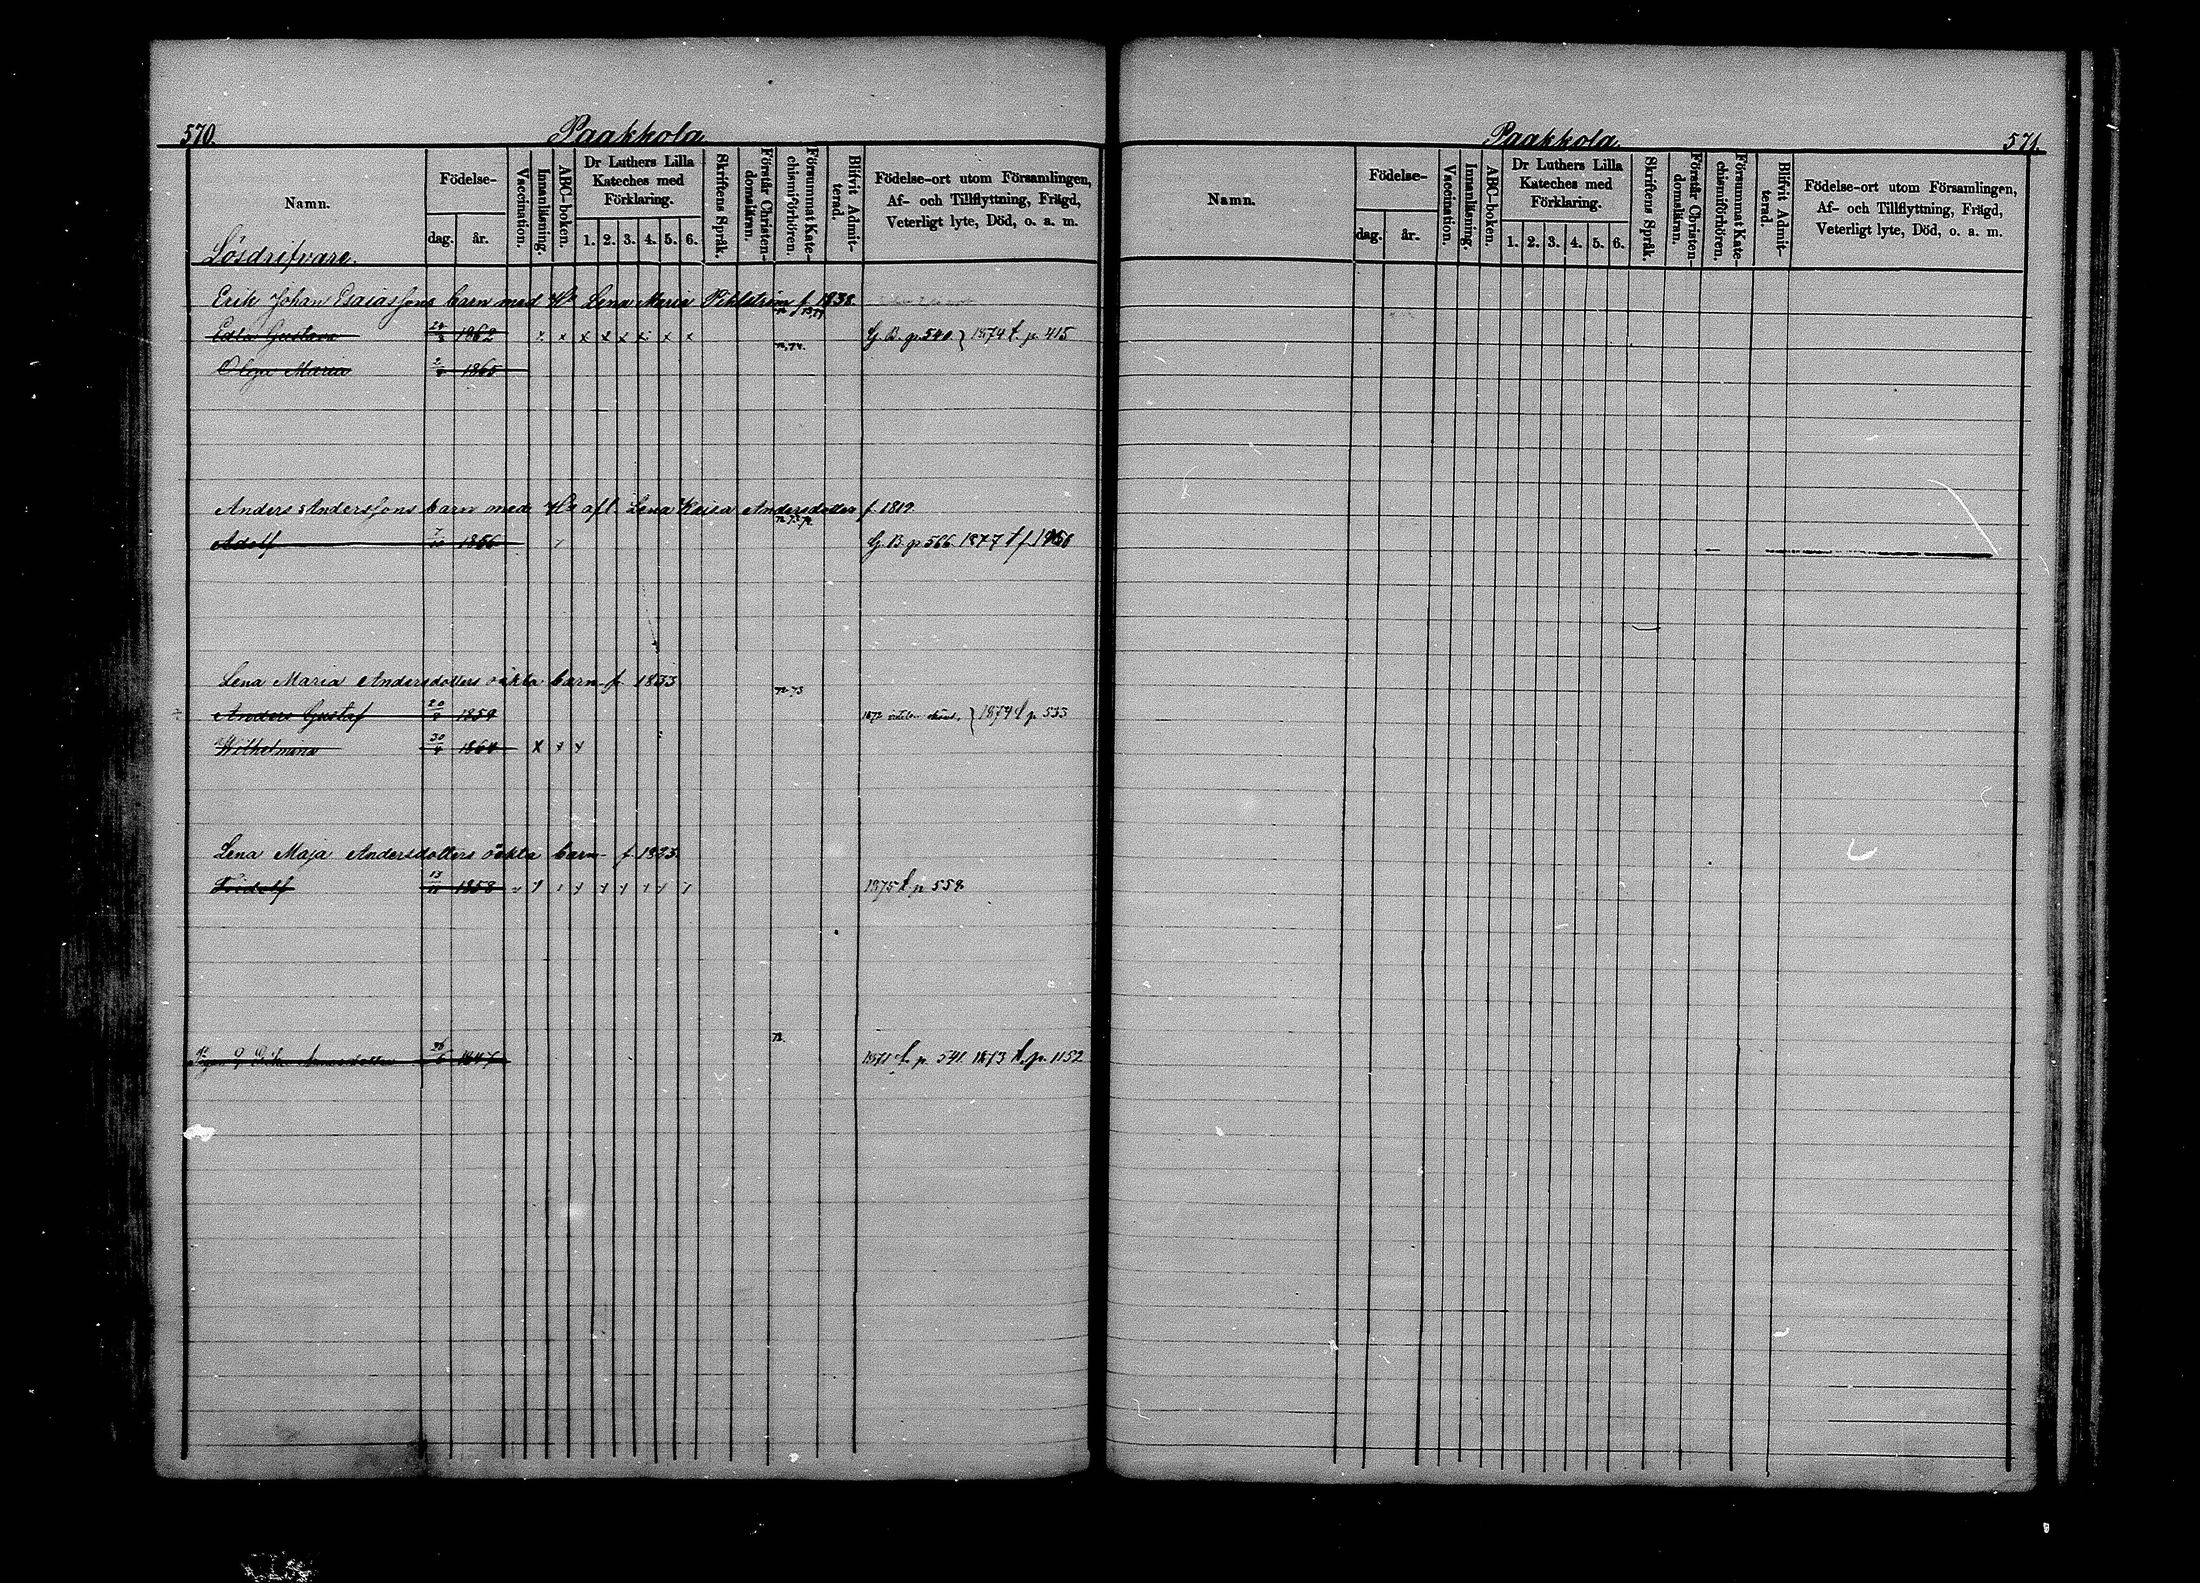 570.
Paakkola
Namn.
Födelse-
dag.
år.
Vaccination.
Innanläsning.
ABC-boken.
Dr Luthers Lilla
Kateches med
Förklaring.
1. 2. 3. 4. 5. 6.
Skriftens Språk.
Förstår Christen-
domsläran.
Försummat Kate-
chismiförhören.
Blifvit Admit-
terad.
Födelse-ort utom Församlingen,
Af- och Tillflyttning, Frägd,
Veterligt lyte, Död, o. a. m.
Lösdrifvare.
Erik Johan Esaiassons barn med H. Lena Maria f. 1838
Edla Gustava 1862 x x x x x x x x G. B. p. 540. } 1874 t. p. 415
Olga Maria 1865
Anders Anderssons barn med Hu afl. Lena Kaisa Andersdotter f. 1819.
Adolf 1856 G. B. p 566. 1877 t
Lena Maria Andersdotters oäkta barn f. 1833
72. 73
Anders Gustaf 20 1859 } 1874 t p. 533
Wilhelmina 30 1864 x x x
Lena Maja Andersdotters oäkta barn f. 1823.
Fridolf 13 1858 1875 t p 558
72.
1847 1871 t. p. 541. 1873 t. p. 1152
Paakkola
571.
Namn.
Födelse-
dag.
år.
Vaccination.
Innanläsning.
ABC-boken.
Dr Luthers Lilla
Kateches med
Förklaring.
1. 2. 3. 4. 5. 6.
Skriftens Språk.
Förstår Christen-
domsläran.
Försummat Kate-
chismiförhören.
Blifvit Admit-
terad.
Födelse-ort utom Församlingen,
Af- och Tillflyttning, Frägd,
Veterligt lyte, Död, o. a. m.